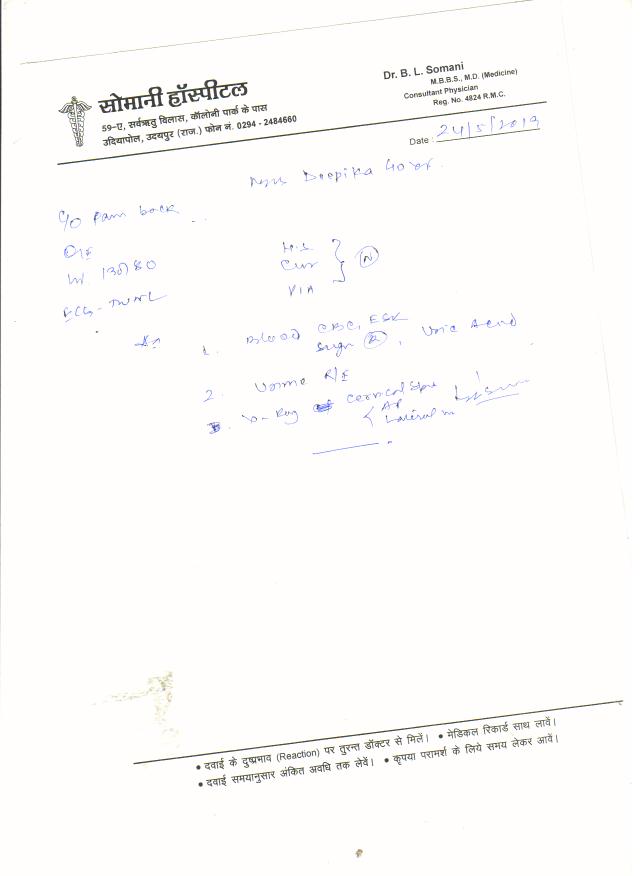 सोमानी हॉस्पीटल
59-ए, सर्वऋतु विलास, कॉलोनी पार्क के पास
उदियापोल, उदयपुर (राज.) फोन नं. 0294 - 2484660
Dr. B. L. Somani
M.B.B.S., M.D. (Medicine)
Consultant Physician
Reg. No. 4824 R.M.C.
Date : 24/5/2019
Deepika
C/o Pain back
O/E
130/80
P/A
N
ECG -
1. Blood CBC, ESR
Sugar R, Uric Acid
2. Urine R/E
3. X-Ray Cervical Spine
AP
Lateral
• दवाई के दुष्प्रभाव (Reaction) पर तुरन्त डॉक्टर से मिलें। • मेडिकल रिकार्ड साथ लावें।
• दवाई समयानुसार अंकित अवधि तक लेवें। • कृपया परामर्श के लिये समय लेकर आवें।